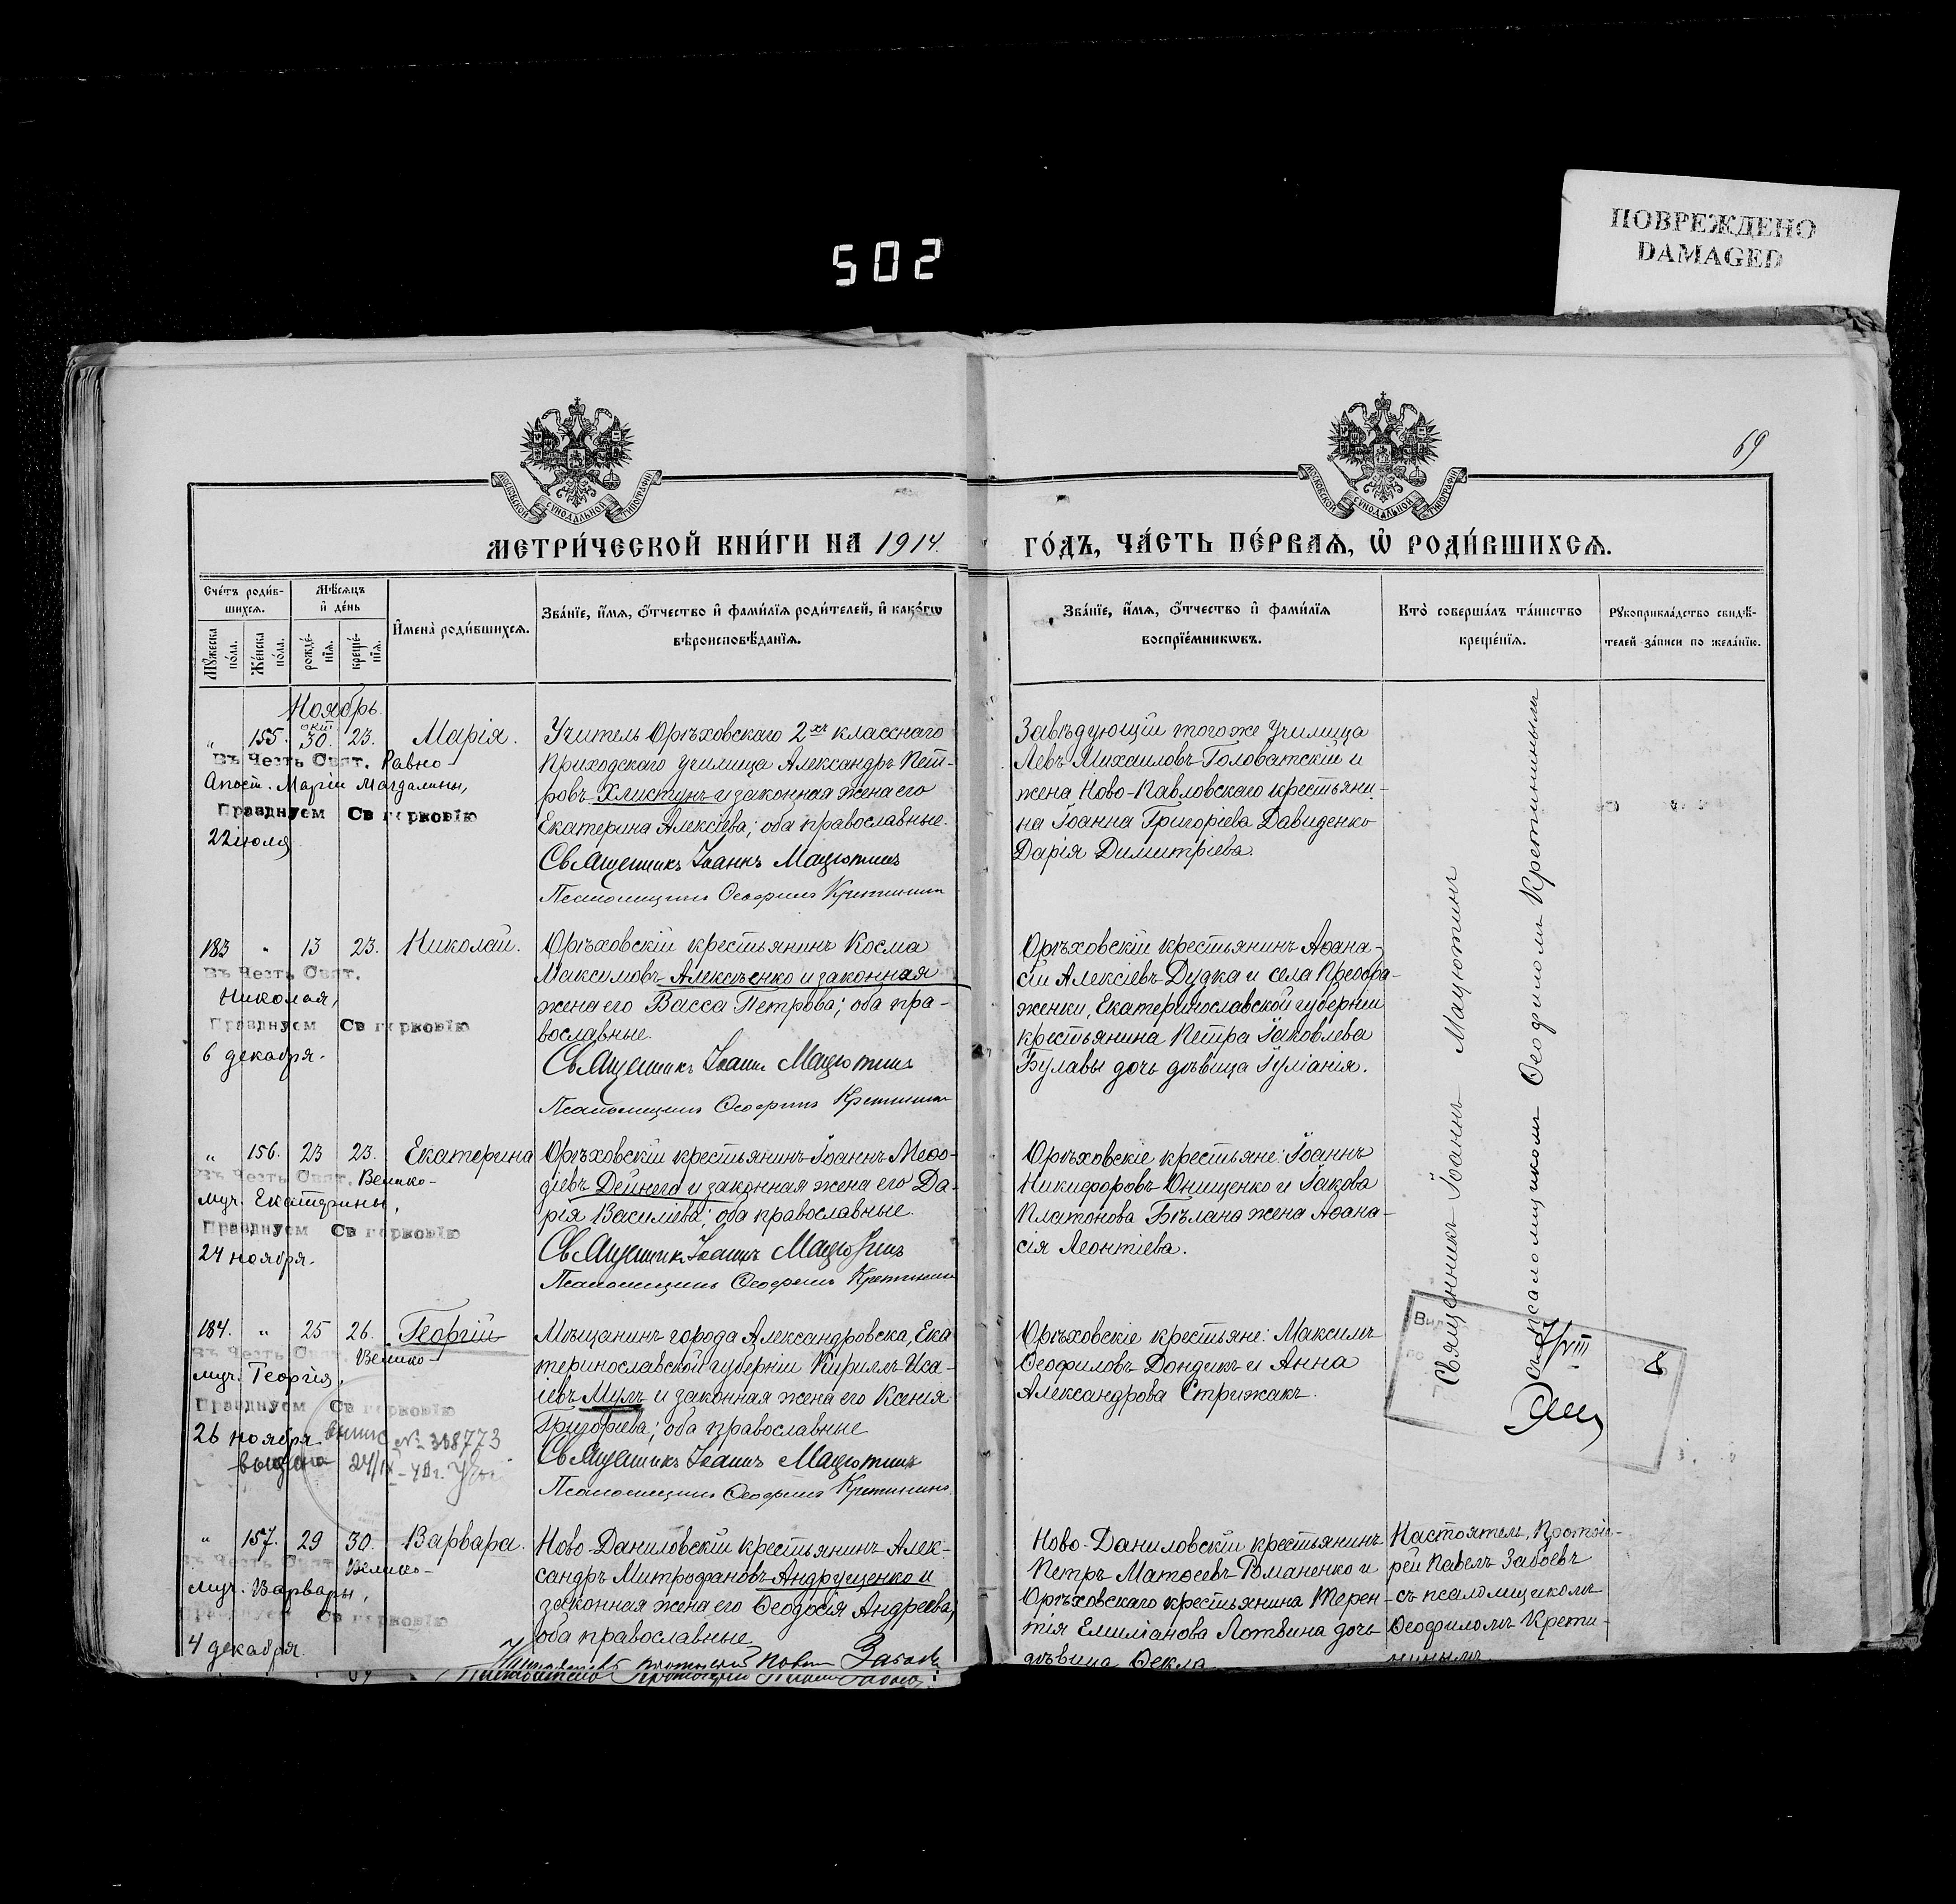 ПОВРЕЖДЕНО
DAMAGED
502
69
МОСКОВСКОЙ СѴНОДАЛЬНОЙ ТИПОГРАФІИ
МОСКОВСКОЙ СѴНОДАЛЬНОЙ ТИПОГРАФІИ
МЕТРИ́ЧЕСКОЙ КНИ́ГИ НА 1914.
ГО́ДЪ, ЧА́СТЬ ПЕ́РВАѦ, Ѡ҆ РОДИ́ВШИХСѦ.
Сче́тъ роди́в-
шихсѧ.
Мѣ́сѧцъ
и҆ де́нь
Мꙋ́жеска по́ла.
Же́нска по́ла.
рожде́-
нїѧ.
креще́-
нїѧ.
И҆мена̀ роди́вшихсѧ.
Зва́нїе, и҆́мѧ, ѻ҆́тчество и҆ фами́лїѧ роди́телей, и҆ како́гѡ
вѣроисповѣ́данїѧ.
Зва́нїе, и҆́мѧ, ѻ҆́тчество и҆ фами́лїѧ
воспрїе́мникѡвъ.
Кто̀ соверша́лъ та́инство
креще́нїѧ.
Рꙋкоприкла́дство свидѣ́-
телей за́писи по жела́нїю.
Ноябрь.
окт.
" 155. 30. 23. Марія.
Въ Честь Свят. Равно-
Апост. Маріи Магдалины,
Празднуем Св церковію
22 июля
Учитель Орѣховскаго 2хъ класснаго
Приходскаго училища Александръ Пет-
ровъ Хлистунъ и законная жена его
Екатерина Алексіева; оба православные.
Священникъ Іоаннъ Мацютинъ
Псаломщикъ Ѳеофилъ Кретининъ
Завѣдующій того же Училища
Левъ Михаиловъ Головатскій и
жена Ново-Павловскаго крестьяни-
на Іоанна Григоріева Давиденко
Дарія Димитріева.
183 " 13 23. Николай.
Въ Честь Свят.
Николая,
Празднуем Св церковію
6 декабря.
Орѣховскій крестьянинъ Косма
Максимовъ Алексѣенко и законная
жена его Васса Петрова; оба пра-
вославные.
Священникъ Іоаннъ Мацютинъ
Псаломщикъ Ѳеофилъ Кретининъ
Орѣховскій крестьянинъ Аѳана-
сій Алексіевъ Дудка и села Преобра-
женки, Екатеринославской губерніи
крестьянина Петра Іаковлева
Булавы дочь дѣвица Іуліанія.
" 156. 23 23. Екатерина
Въ Честь Свят. Велико-
муч. Екатерины,
Празднуем Св церковію
24 ноября.
Орѣховскій крестьянинъ Іоаннъ Меѳо-
діевъ Дейнега и законная жена его Да-
рія Василіева; оба православные.
Священникъ Іоаннъ Мацютинъ
Псаломщикъ Ѳеофилъ Кретининъ
Орѣховскіе крестьяне: Іоаннъ
Никифоровъ Онищенко и Іакова
Платонова Бѣлана жена Аѳана-
сія Леонтіева.
184. " 25 26. Георгій
Въ Честь Свят. Велико-
муч. Георгія,
Празднуем Св церковію
26 ноября.
№ 338773
выдана 24/IX
Мѣщанинъ города Александровска, Ека-
теринославской губерніи Кириллъ Иса-
іевъ Мулъ и законная жена его Ксенія
Григоріева; оба православные
Священникъ Іоаннъ Мацютинъ
Псаломщикъ Ѳеофилъ Кретининъ.
Орѣховскіе крестьяне: Максимъ
Ѳеофиловъ Дондикъ и Анна
Александрова Стрижакъ.
Священникъ Іоаннъ Мацютинъ
съ псаломщикомъ Ѳеофиломъ Кретининымъ
7/VIII
8
" 157. 29 30. Варвара.
Въ Честь Свят. Велико-
муч. Варвары,
Празднуем Св церковію
4 декабря.
Ново-Даниловскій крестьянинъ Алек-
сандръ Митрофановъ Андрущенко и
законная жена его Ѳеодосія Андреева,
оба православные.
Настоятель протоіерей Павелъ Забоевъ
Ново-Даниловскій крестьянинъ
Петръ Матѳеевъ Романенко и
Орѣховскаго крестьянина Терен-
тія Емиліанова Лотвина дочь
дѣвица Ѳекла.
Настоятель, Протоіе-
рей Павелъ Забоевъ
съ псаломщикомъ
Ѳеофиломъ Крети-
нинымъ.